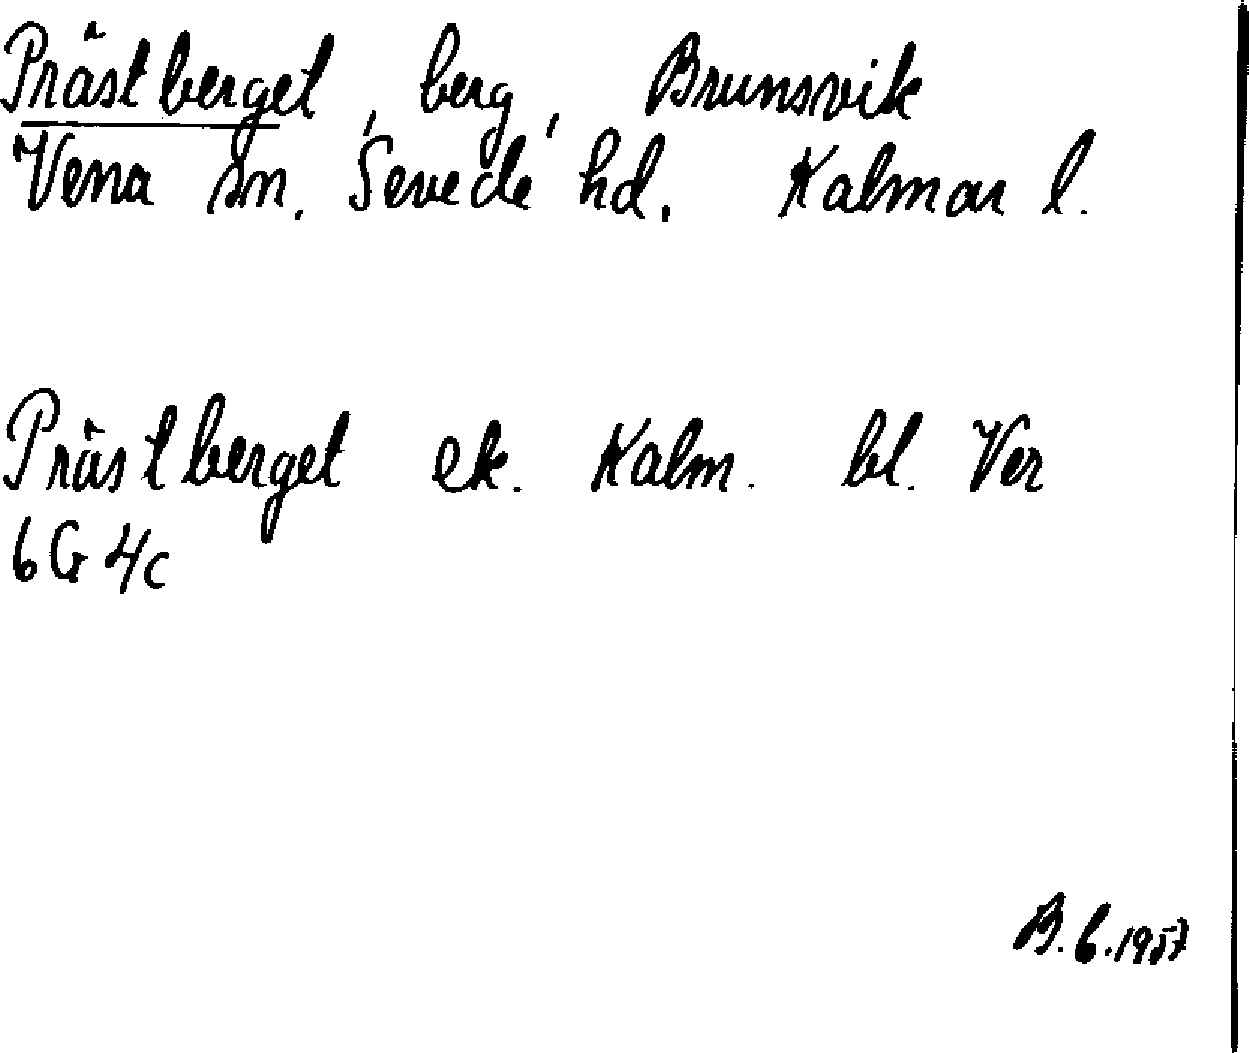 Prästberget, berg, Brunsvik
Vena sn. Sevede hd. Kalmar l.
Prästberget ek. Kalm. bl. Ver
6G 4c
B.C. 1957